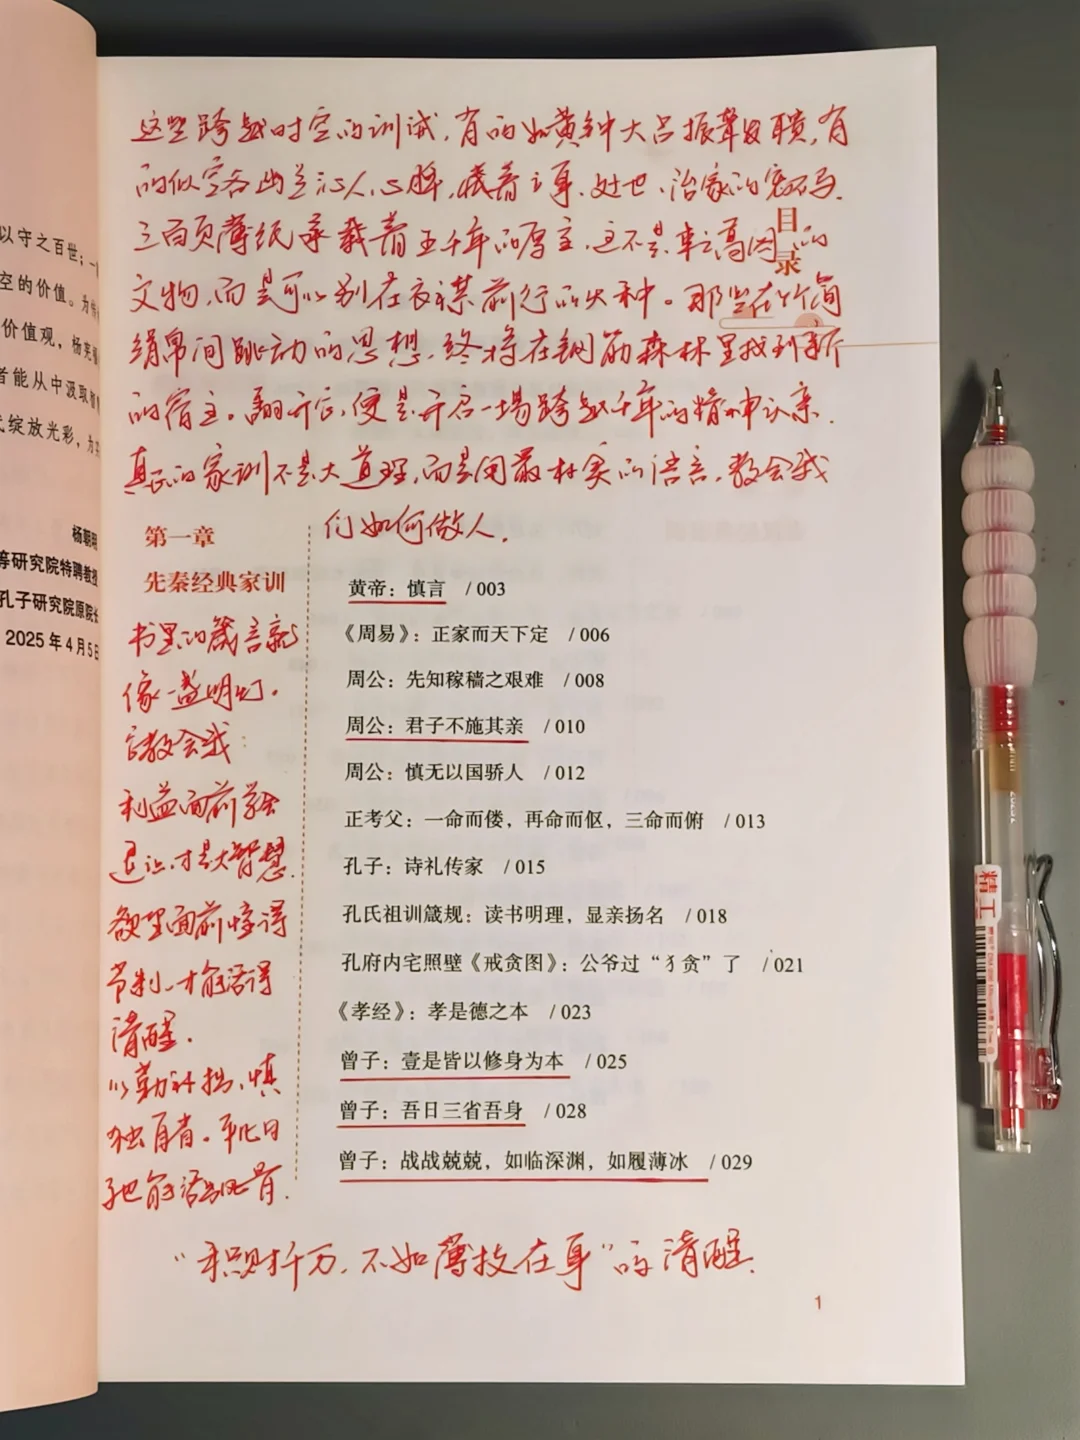 以守之百世；
空的价值。为
价值观，杨
者能从中汲取
绽放光彩，为
杨朝明
等研究院特聘教授
孔子研究院原院长
2025年4月5日
这些跨越时空的训诫，有的如黄钟大吕振聋发聩，有
的似空谷幽兰沁人心脾，藏着立身、处世、治家的密码。
三百页薄纸承载着五千年的厚重，这不是束之高阁的
文物，而是可以别在衣襟前行的火种。那些在竹简
绢帛间跳动的思想，终将在钢筋森林里找到新
的宿主。翻开它，便是开启一场跨越千年的精神认亲。
真正的家训不是大道理，而是用最朴实的语言，教会我
们如何做人。
目录
第一章
先秦经典家训
黄帝：慎言 / 003
《周易》：正家而天下定 / 006
周公：先知稼穑之艰难 / 008
周公：君子不施其亲 / 010
周公：慎无以国骄人 / 012
正考父：一命而偻，再命而伛，三命而俯 / 013
孔子：诗礼传家 / 015
孔氏祖训箴规：读书明理，显亲扬名 / 018
孔府内宅照壁《戒贪图》：公爷过“犭贪”了 / 021
《孝经》：孝是德之本 / 023
曾子：壹是皆以修身为本 / 025
曾子：吾日三省吾身 / 028
曾子：战战兢兢，如临深渊，如履薄冰 / 029
书里的箴言就
像一盏明灯。
它教会我：
利益面前学会
退让，才是大智慧。
欲望面前懂得
节制，才能活得
清醒。
以勤补拙，慎
独自省。平凡日
子也能活出风骨。
“积财千万，不如薄技在身”的清醒。
1
精工